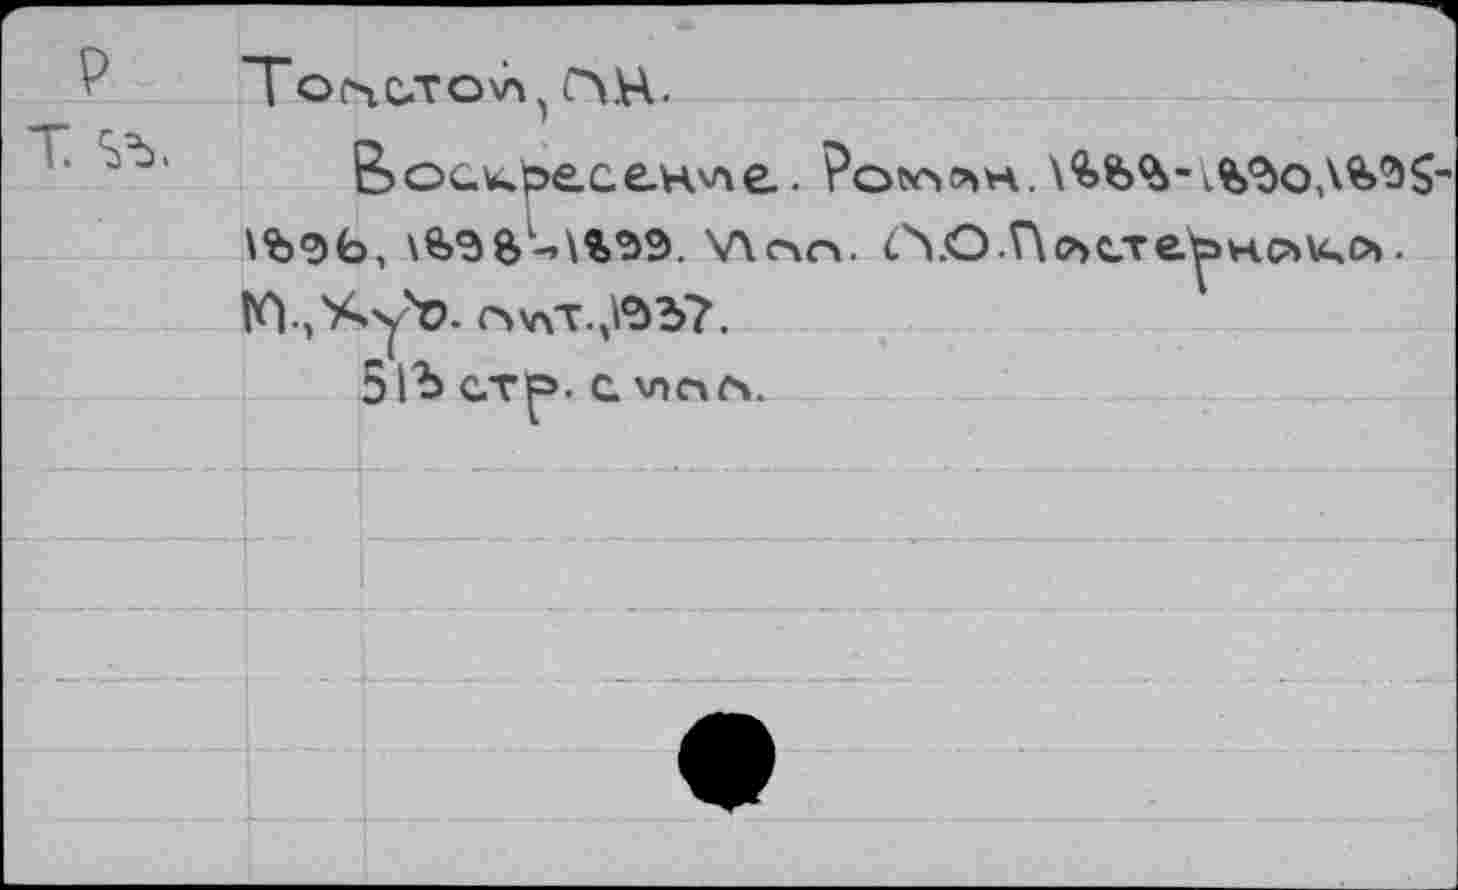 Р Толстой, Л.Н.
Т. 53.
Воскресение. Роман. 1889-1890, 1895-
1896, 1898-1899. Илл. Л.О.Пастернака.
М., Худ. лит., 1937.
513 стр. с илл.